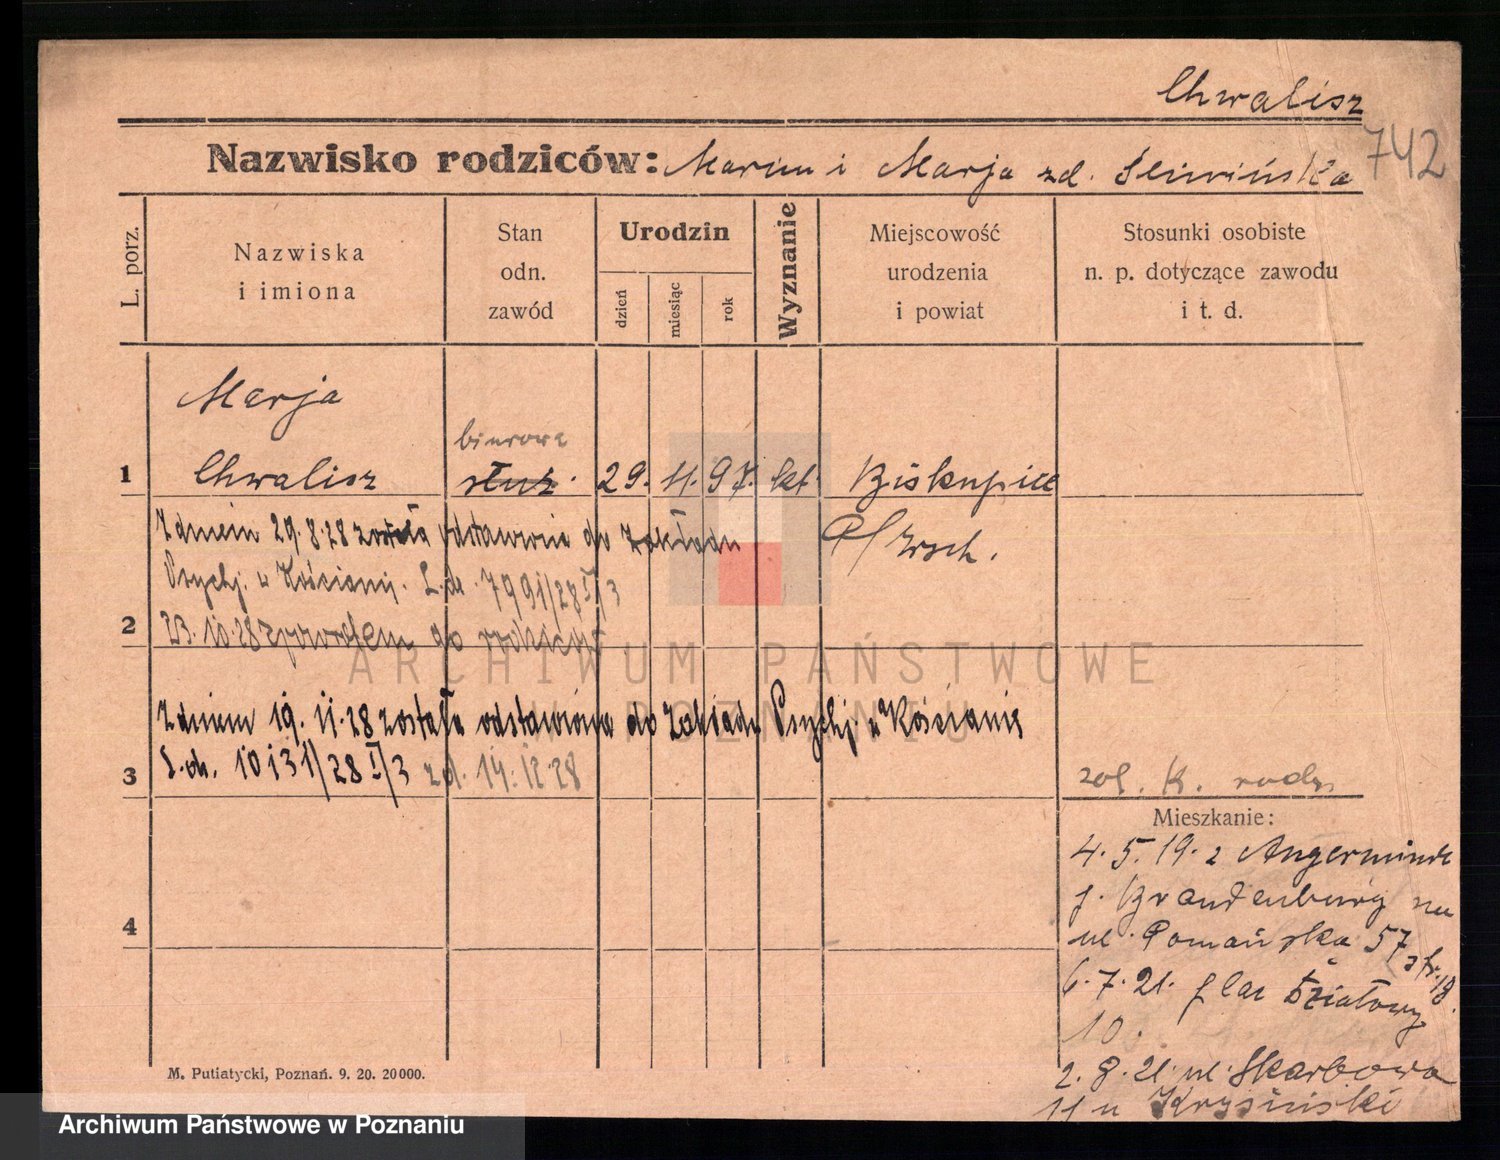 Chwalisz
742
Nazwisko rodziców: Marcin i Marja zd. Śliwińska
L. porz.
Nazwiska
i imiona
Stan
odn.
zawód
Urodzin
dzień
miesiąc
rok
Wyznanie
Miejscowość
urodzenia
i powiat
Stosunki osobiste
n. p. dotyczące zawodu
i t. d.
Marja
biurowa
1 Chwalisz służ. 29. 11. 97. kt. Biskupice
Zdniem 29.8.28 została odstawiona do Zakładu
P/ wsch.
Psychj. w Kościanie. L.dz. 7991/28 I/3
2 23.10.28 z powrotem do rodziców
Zdniem 19.11.28 została odstawiona do Zakładu Psychj. w Kościanie
3 L.dz. 10131/28 I/3 zd. 14.12.28
zob. K. rodz.
Mieszkanie:
4.5.19. z Angermünde
j. Brandenburg na
4
ul. Poznańska 57
6.7.21. plac Działowy
10.
2.8.21. ul. Skarbowa
11 u Krysiński
M. Putiatycki, Poznań. 9. 20. 20000.
ARCHIWUM PAŃSTWOWE
W POZNANIU
Archiwum Państwowe w Poznaniu